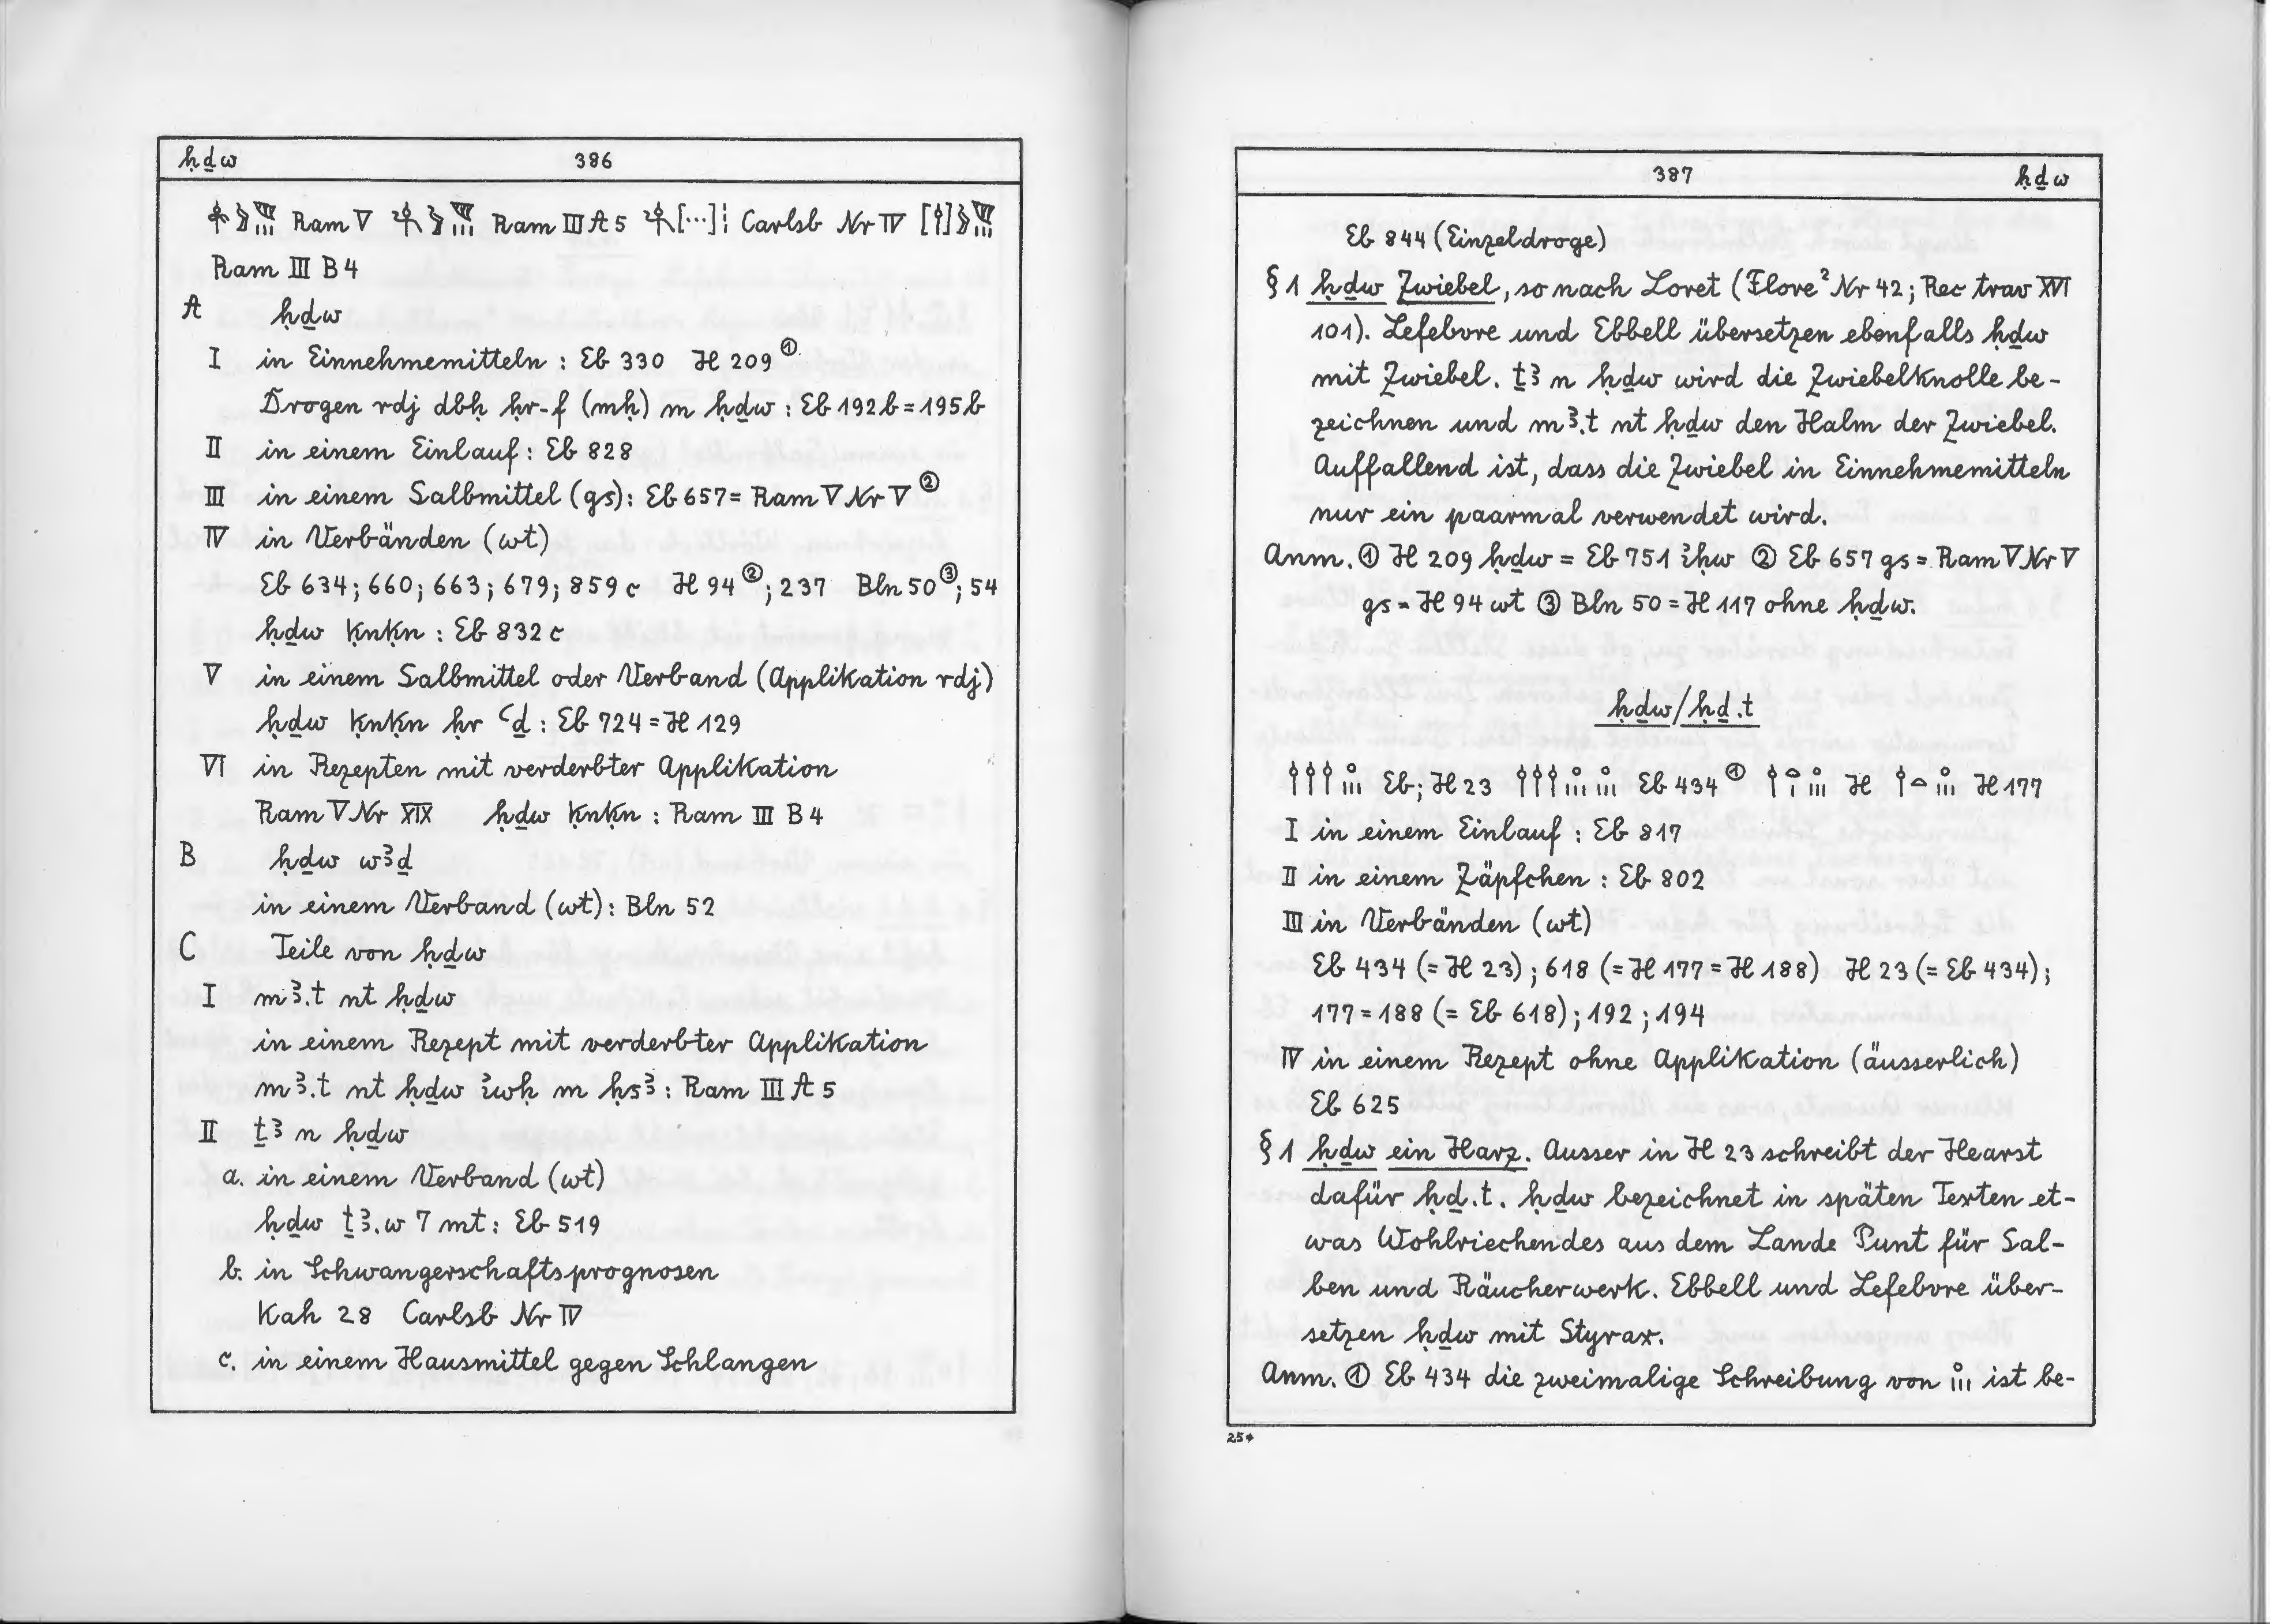 ḥḏw 386
Ram V Ram III A 5 [...] Carlsb Nr IV
Ram III B 4
A ḥḏw
I in Einnehmemitteln : Eb 330 H 209 ①
Drogen rdj dbḥ ḥr-f (mḥ) m ḥḏw : Eb 192b = 195b
II in einem Einlauf : Eb 828
III in einem Salbmittel (gs) : Eb 657 = Ram V Nr V ②
IV in Verbänden (wt)
Eb 634 ; 660 ; 663 ; 679 ; 859 c H 94 ② ; 237 Bln 50 ③ ; 54
ḥḏw ḳnḳn : Eb 832 c
V in einem Salbmittel oder Verband (Applikation rdj)
ḥḏw ḳnḳn ḥr ꜥḏ : Eb 724 = H 129
VI in Rezepten mit verderbter Applikation
Ram V Nr XIX ḥḏw ḳnḳn : Ram III B 4
B ḥḏw wꜣḏ
in einem Verband (wt) : Bln 52
C Teile von ḥḏw
I mꜣ.t nt ḥḏw
in einem Rezept mit verderbter Applikation
mꜣ.t nt ḥḏw ꞽwḥ m ḥsꜣ : Ram III A 5
II ṯꜣ n ḥḏw
a. in einem Verband (wt)
ḥḏw ṯꜣ.w 7 mt : Eb 519
b. in Schwangerschaftsprognosen
Kah 28 Carlsb Nr IV
c. in einem Hausmittel gegen Schlangen
387 ḥḏw
Eb 844 (Einzeldroge)
§ 1 ḥḏw Zwiebel, so nach Loret (Flore² Nr 42 ; Rec trav XVI
101). Lefebvre und Ebbell übersetzen ebenfalls ḥḏw
mit Zwiebel. ṯꜣ n ḥḏw wird die Zwiebelknolle be-
zeichnen und mꜣ.t nt ḥḏw den Halm der Zwiebel.
Auffallend ist, dass die Zwiebel in Einnehmemitteln
nur ein paarmal verwendet wird.
Anm. ① H 209 ḥḏw = Eb 751 ꞽhw ② Eb 657 gs = Ram V Nr V
gs = H 94 wt ③ Bln 50 = H 117 ohne ḥḏw.
ḥḏw / ḥḏ.t
Eb ; H 23 Eb 434 ① H H 177
I in einem Einlauf : Eb 817
II in einem Zäpfchen : Eb 802
III in Verbänden (wt)
Eb 434 (= H 23) ; 618 (= H 177 = H 188) H 23 (= Eb 434) ;
177 = 188 (= Eb 618) ; 192 ; 194
IV in einem Rezept ohne Applikation (äusserlich)
Eb 625
§ 1 ḥḏw ein Harz. Ausser in H 23 schreibt der Hearst
dafür ḥḏ.t. ḥḏw bezeichnet in späten Texten et-
was Wohlriechendes aus dem Lande Punt für Sal-
ben und Räucherwerk. Ebbell und Lefebvre über-
setzen ḥḏw mit Styrax.
Anm. ① Eb 434 die zweimalige Schreibung von ist be-
25*